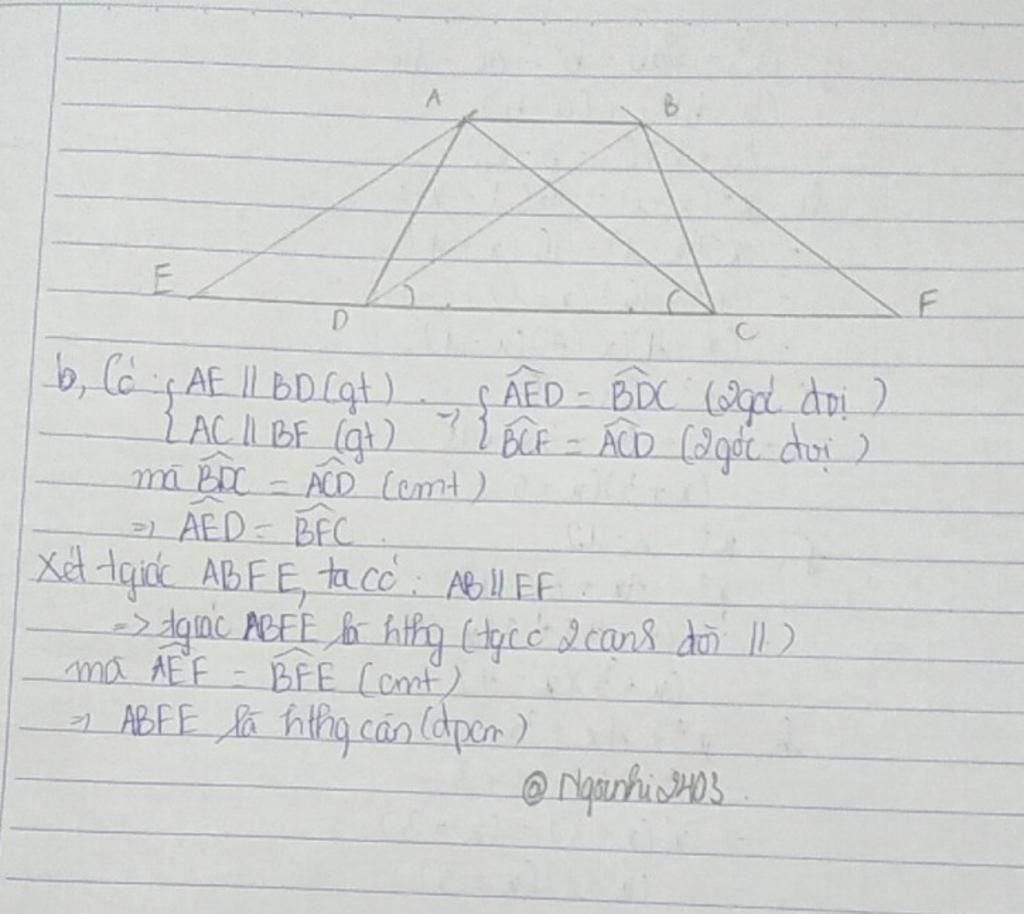 A B
E D C F
b, Có { AE // BD (gt) => { AED = BDC (2góc đvị)
{ AC // BF (gt) { BCF = ACD (2góc đvị)
mà BDC = ACD (cmt)
=> AED = BFC.
Xét tgiác ABFE, ta có: AB // EF
=> tgiác ABFE là hthg (tgcó 2 cạnh đối //)
mà AEF = BFE (cmt)
=> ABFE là hthg cân (đpcm)